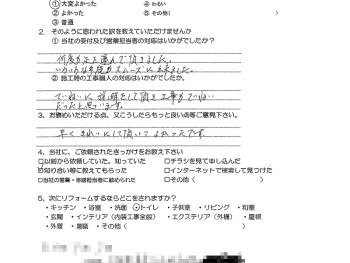 ①大変よかった ④ わるい
② よかった ⑤ その他( )
③ 普通
2. そのように思われた訳を教えていただけませんか
① 当社の受付及び営業担当者の対応はいかがでしたか?
何度も足を運んで頂きました。
スムーズに出来ました。
② 施工時の工事職人の対応はいかがでしたか?
ていねいに説明をして頂き工事もていねい
だったと思います。
3. お褒めいただける点、又こうしたらもっと良い点等ご意見下さい。
早く きれいにして頂いて よかったです
4. 当社に、ご依頼されたきっかけをお教え下さい
□以前から依頼していた。知っていた □チラシを見て申し込んだ
☑知り合い等に教えてもらった □インターネットで検索して見つけた
□当社の営業・専属担当者に勧められた □その他( )
5. 次にリフォームするならどこをされますか?
・キッチン ・浴室 ・洗面 ・トイレ ・子供室 ・リビング ・和室
・玄関 ・インテリア(内装工事全般) ・エクステリア(外構) ・屋根
・外壁 ・増築 ・その他( )